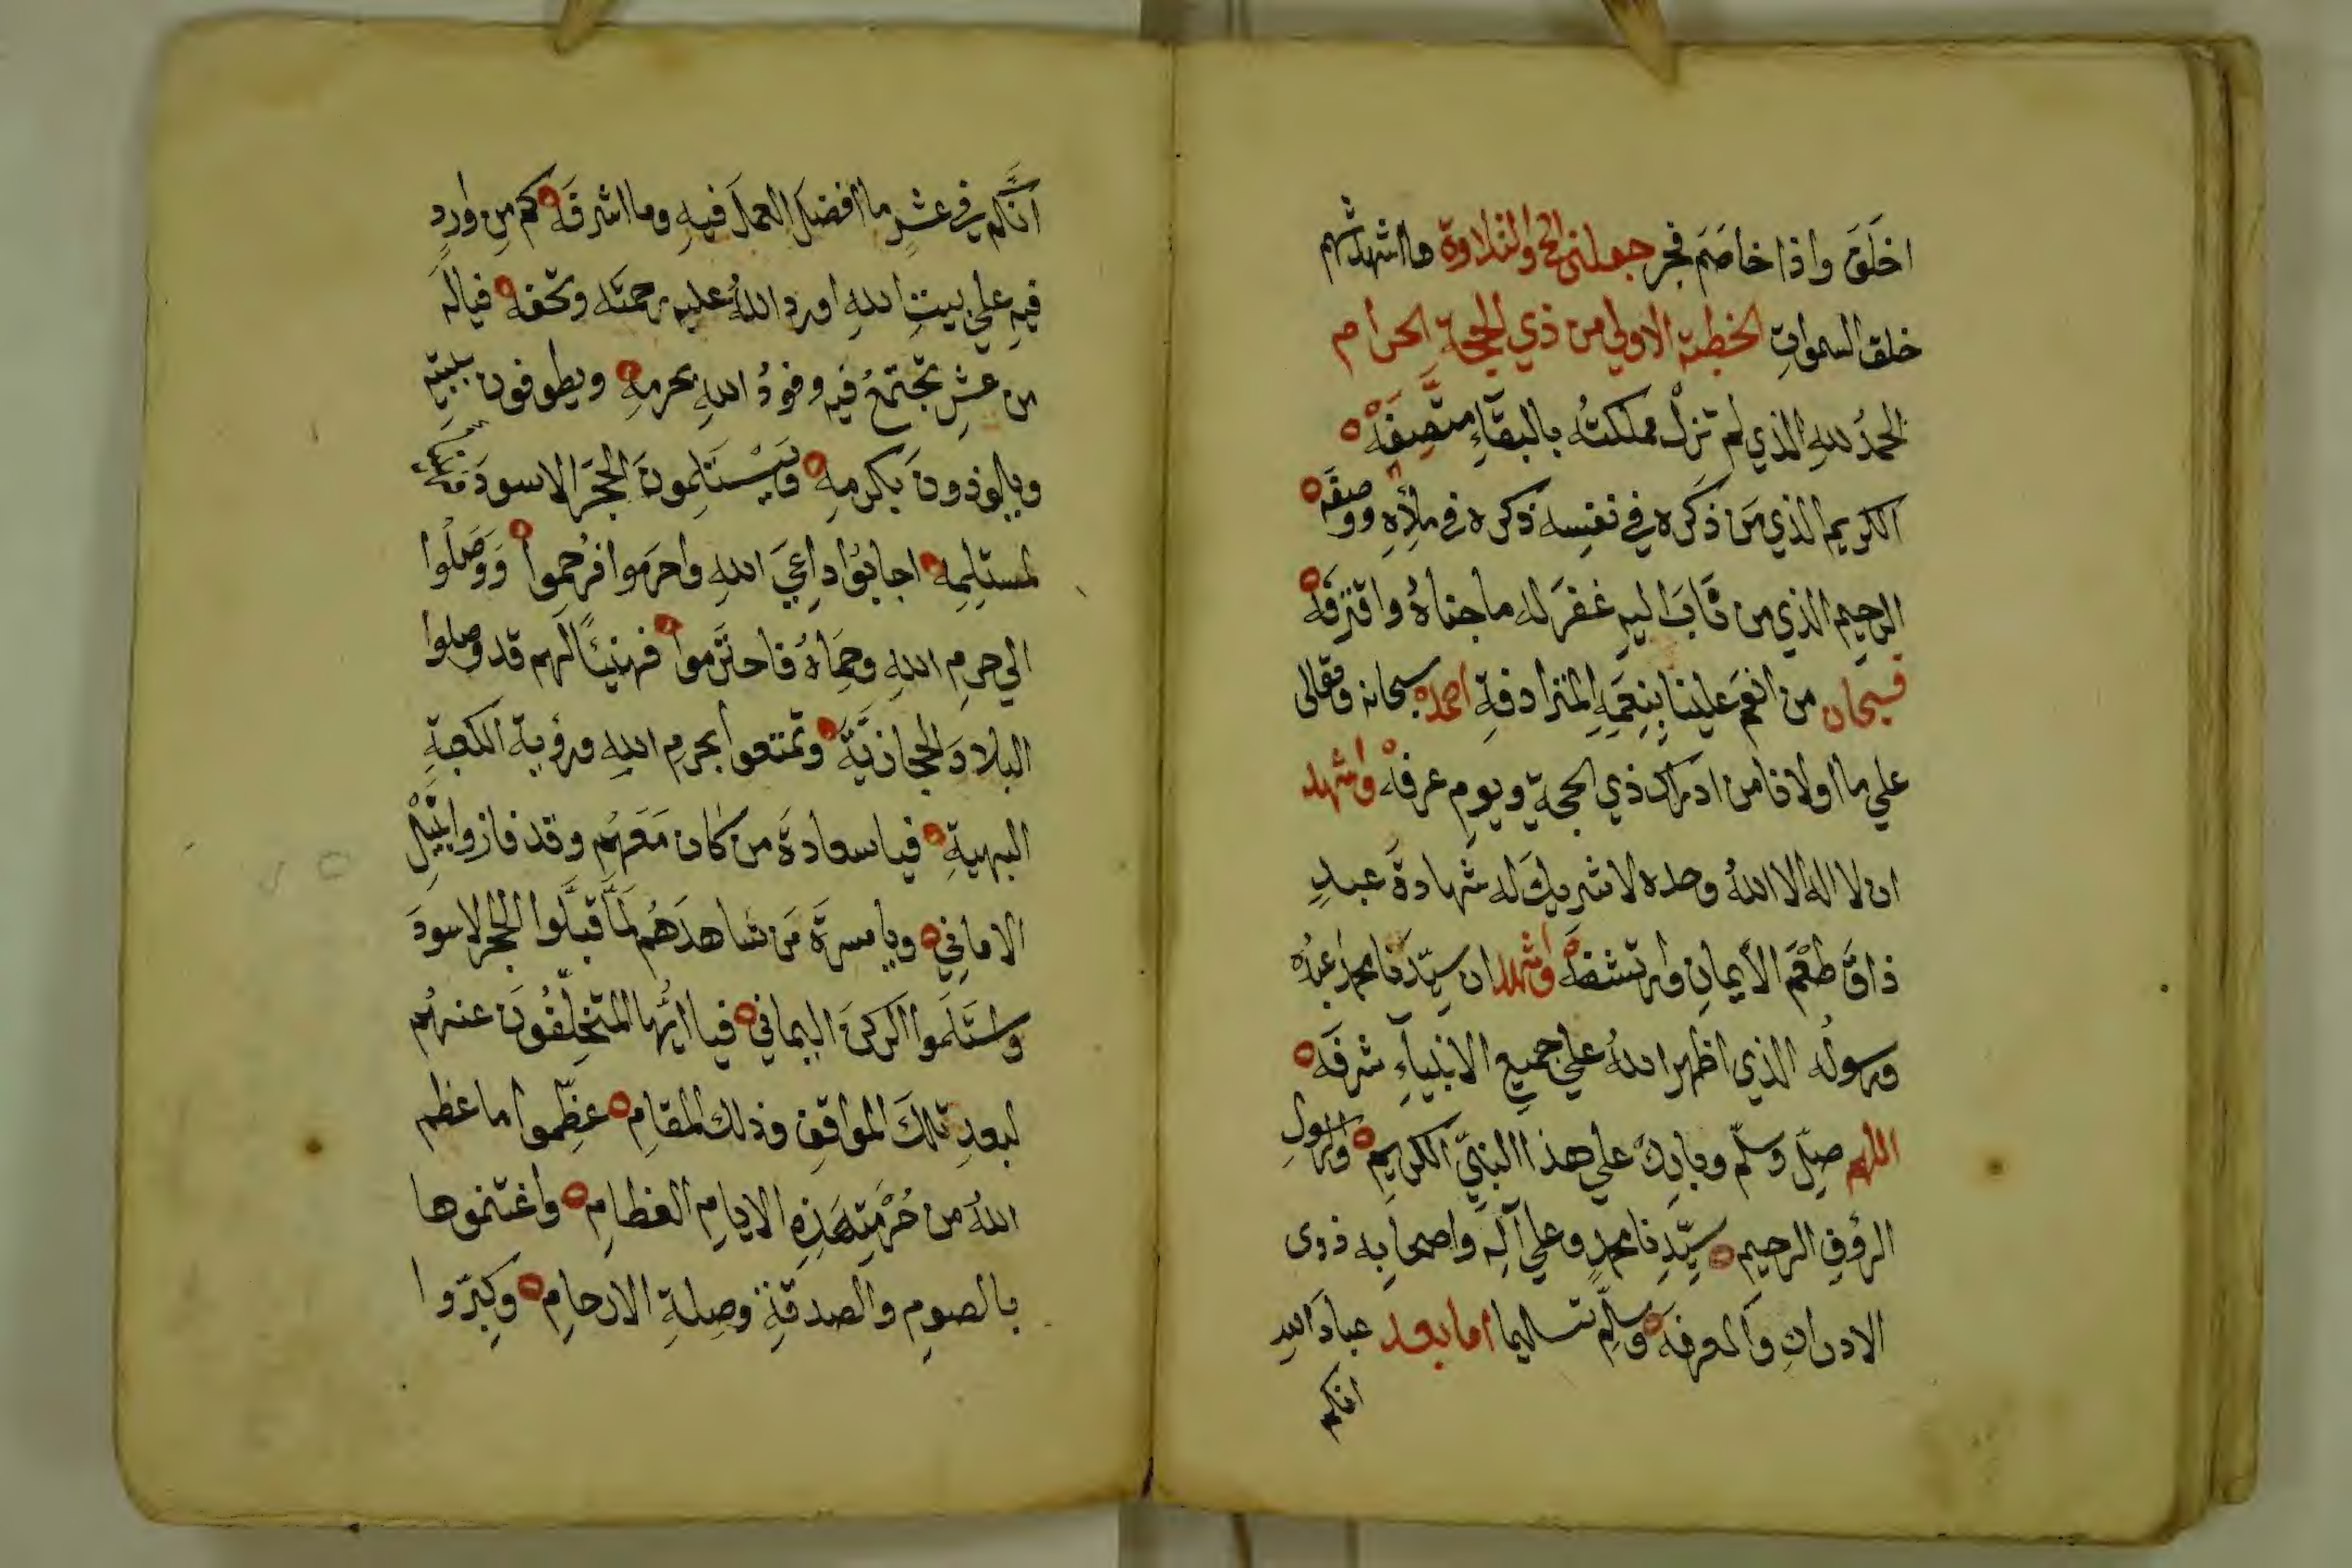 اخلَفَ واذا خاصَم فجر جعلني الله والتلاوة ما اشهدتُهم
خلق السمواتِ الخطبة الاولي من ذي الحجة الحرام
الحمدُ للهِ الذي لم تزلْ مملكتُه بالبقآءِ متَّصِفَهْ
الكريم الذي مَن ذكَره في نفسِه ذكره في ملأِهِ ووصفَه
الرحيم الذي من تابَ اليهِ غفرَ له ما جناهُ واقترفَه
فسبحان من انعَم علينا بنِعَمِهِ المترادفةِ احمده سبحانه وتعالى
علي ما اولانا من ادراك ذي الحجةِ ويومِ عرفهْ واشهد
ان لا اله الا اللهُ وحده لا شريكَ له شهادةَ عبدٍ
ذاقَ طَعْمَ الأيمانِ وارتشفَهْ واشهد ان سيّدَنا محمدًا عبدُه
ورسولُه الذي اظهر اللهُ علي جميعِ الانبيآءِ شرفَه
اللهم صلِّ وسلّم وبارك علي هذا النبيِّ الكريمِ والرسولِ
الرؤفِ الرحيم سيّدِنا محمدٍ وعلي آلِه واصحابِه ذوى
الادراكِ والمعرفَه وسلِّم تسليما اما بعد عبادَ اللهِ
انكم
انَّكم في عشرٍ ما افضلَ العملَ فيهِ وما اشرفَه كم مِن واردٍ
فيهِ علي بيتِ اللهِ اورد اللهُ عليه رحمتَه وتحفَه فيالَه
من عشرٍ تجتمعُ فيه وفودُ اللهِ بحرمِهِ ويطوفون ببيتِهِ
ويلوذونَ بكرمِهِ ويَسْتَلِمونَ الحجَرَ الاسودَ
لمستلِمِهِ اجابُوا داعِيَ اللهِ واحرَموا فرُحِموا وَوَصَلُوا
الي حرمِ اللهِ وحِمَاهُ فاحتَرموا فهنيئًا لهم قد وصلوا
البلادَ الحجازيَّةَ وتمتعوا بحرمِ اللهِ ورؤيةِ الكعبةِ
البهيةِ فيا سعادةَ من كان مَعَهُم وقد فازوا بنَيْلِ
الاماني ويا مسرةَ مَن شاهدَهُم لمَّا قبَّلوا الحجرَ الاسودَ
واستَلَموا الركنَ اليماني فيا ايُّها المتخلِّفُونَ عنهُم
لبعدِ تلكَ المواقفِ وذلك المقامِ عظِّموا ما عظم
اللهُ من حُرْمَتِه هَذِهِ الايامِ العظامِ واغتنموها
بالصومِ والصدقةِ وصِلةِ الارحامِ وكبّروا